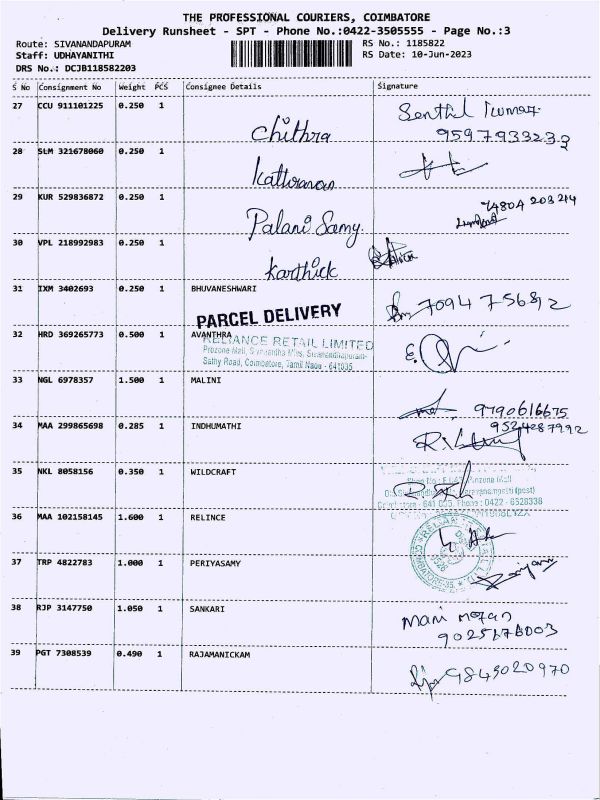 THE PROFESSIONAL COURIERS, COIMBATORE
Delivery Runsheet - SPT - Phone No.:0422-3505555 - Page No.:3
Route: SIVANANDAPURAM RS No.: 1185822
Staff: UDHAYANITHI RS Date: 10-Jun-2023
DRS No.: DCJB118582203
S No Consignment No Weight PCS Consignee Details Signature
27 CCU 911101225 0.250 1 Senthil Kumar
Chithra 9597933233
28 SLM 321678060 0.250 1
29 KUR 529836872 0.250 1
Palani Samy
30 VPL 218992983 0.250 1
Karthick
31 IXM 3402693 0.250 1 BHUVANESHWARI
PARCEL DELIVERY
32 HRD 369265773 0.500 1 AVANTHRA
RELIANCE RETAIL LIMITED
Prozone Mall,
Sathy Road, Coimbatore, Tamil Nadu - 641035
33 NGL 6978357 1.500 1 MALINI
9790616675
34 MAA 299865698 0.285 1 INDHUMATHI 9524287992
35 NKL 8058156 0.350 1 WILDCRAFT
36 MAA 102158145 1.600 1 RELINCE
37 TRP 4822783 1.000 1 PERIYASAMY
38 RJP 3147750 1.050 1 SANKARI
39 PGT 7308539 0.490 1 RAJAMANICKAM
9843020970